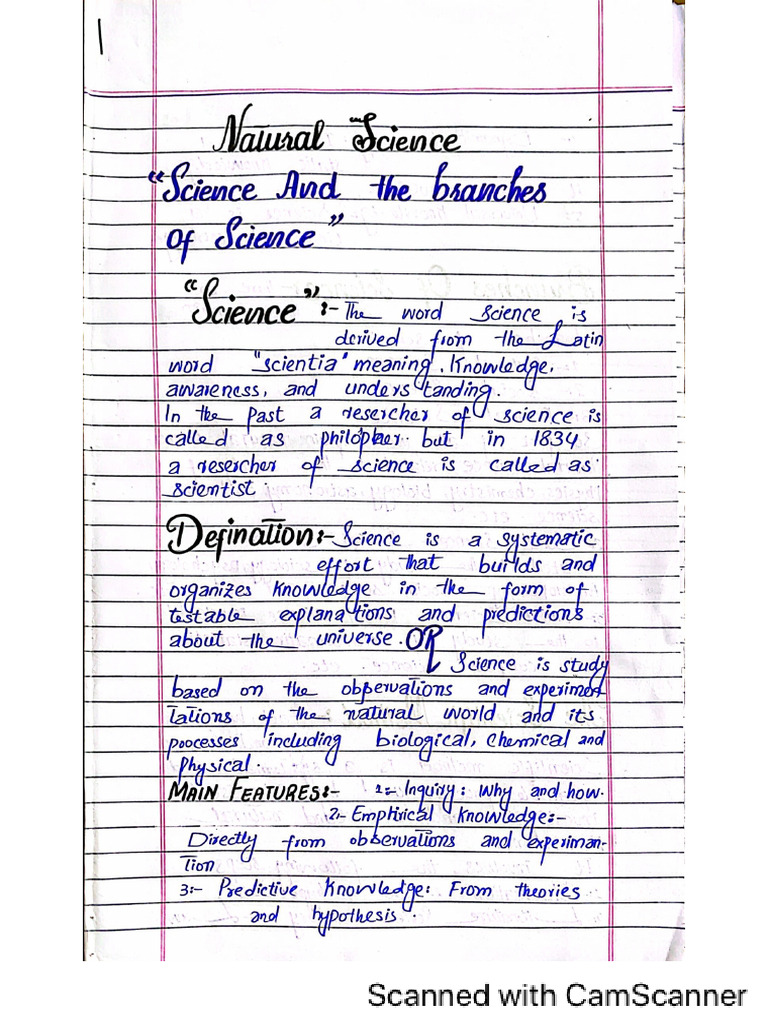 1
Natural Science
"Science And the branches
of Science"
"Science":- The word science is
derived from the Latin
word "scientia" meaning, Knowledge,
awareness, and understanding.
In the past a resercher of science is
called as philopher but in 1834
a resercher of science is called as
scientist.
Defination:- Science is a systematic
effort that builds and
organizes knowledge in the form of
testable explanations and predictions
about the universe. OR
Science is study
based on the observations and experimen
tations of the natural world and its
processes including biological, chemical and
physical.
MAIN FEATURES:- 1:- Inquiry: Why and how.
2:- Emphirical Knowledge:-
Directly from observations and experiman-
tion
3:- Predictive Knowledge: From theories
and hypothesis.
Scanned with CamScanner